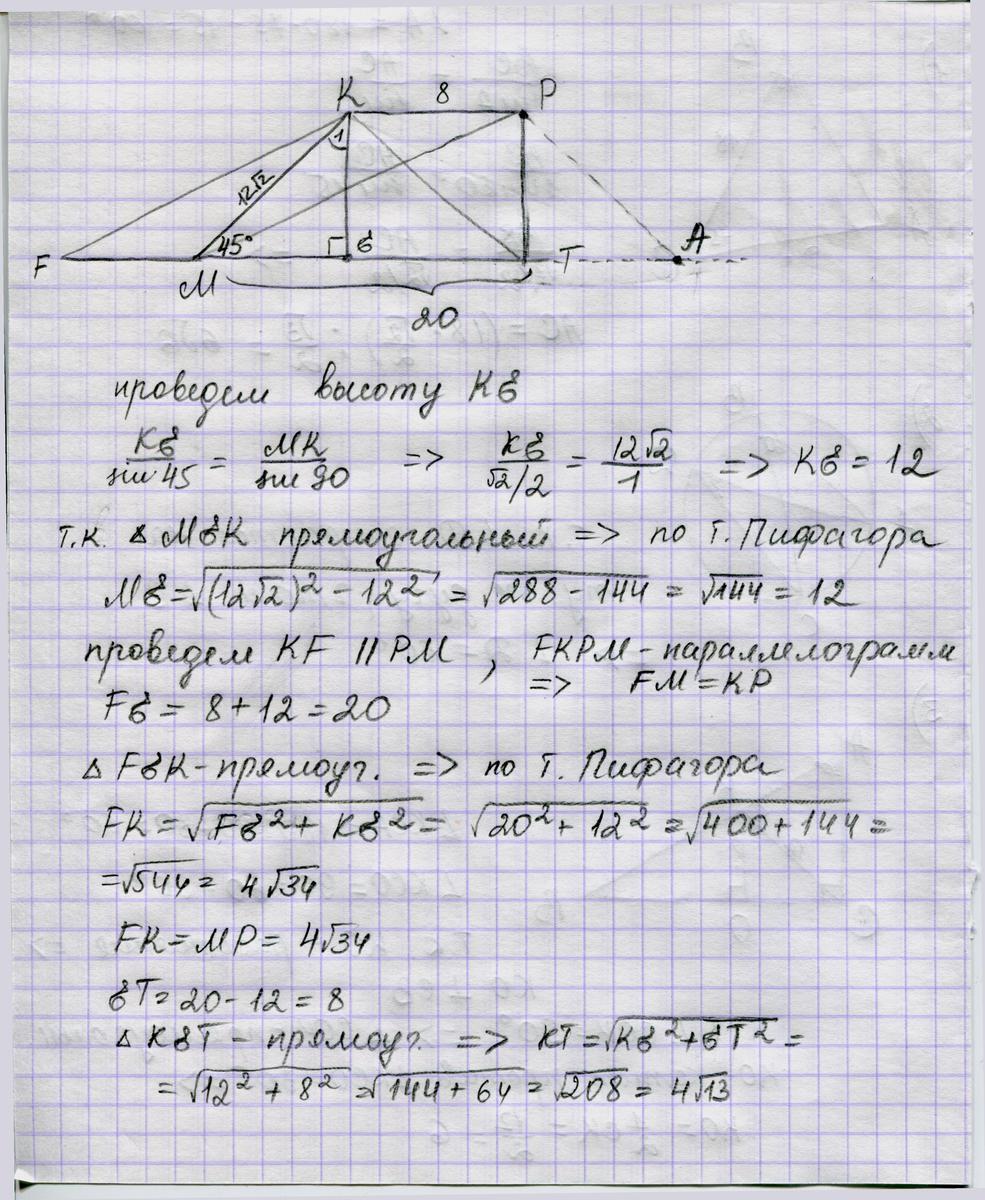 K 8 P
1
12√2
F 45° в T A
M
20
проведем высоту Kв
Kв/sin 45 = MK/sin 90 => Kв/√2/2 = 12√2/1 => Kв = 12
т.к. △ MвK прямоугольный => по т. Пифагора
Mв = √(12√2)² - 12² = √288 - 144 = √144 = 12
проведем KF || PM , FKPM - параллелограмм
=> FM = KP
Fв = 8 + 12 = 20
△ FвK - прямоуг. => по т. Пифагора
FK = √Fв² + Kв² = √20² + 12² = √400 + 144 =
= √544 = 4√34
FK = MP = 4√34
вT = 20 - 12 = 8
△ KвT - прямоуг. => KT = √Kв² + вT² =
= √12² + 8² = √144 + 64 = √208 = 4√13